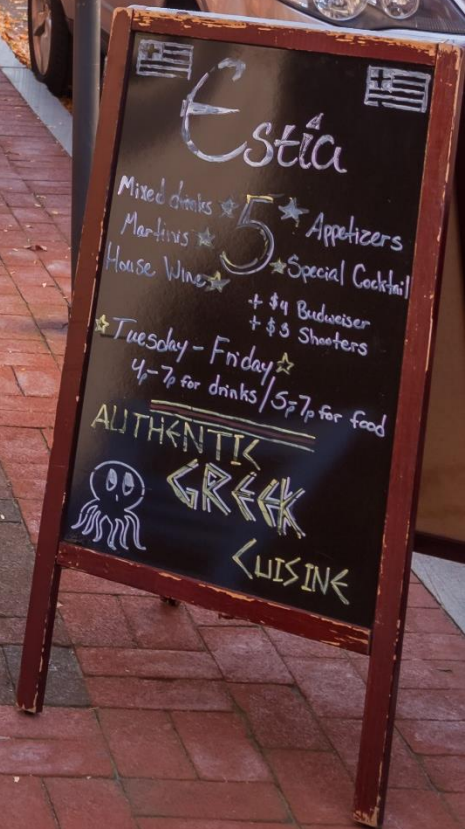 Estia
Mixed drinks
Martinis
House Wine
5
Appetizers
Special Cocktail
+ $4 Budweiser
+ $3 Shooters
Tuesday - Friday
4p-7p for drinks/5p-7p for food
AUTHENTIC
GREEK
CUISINE